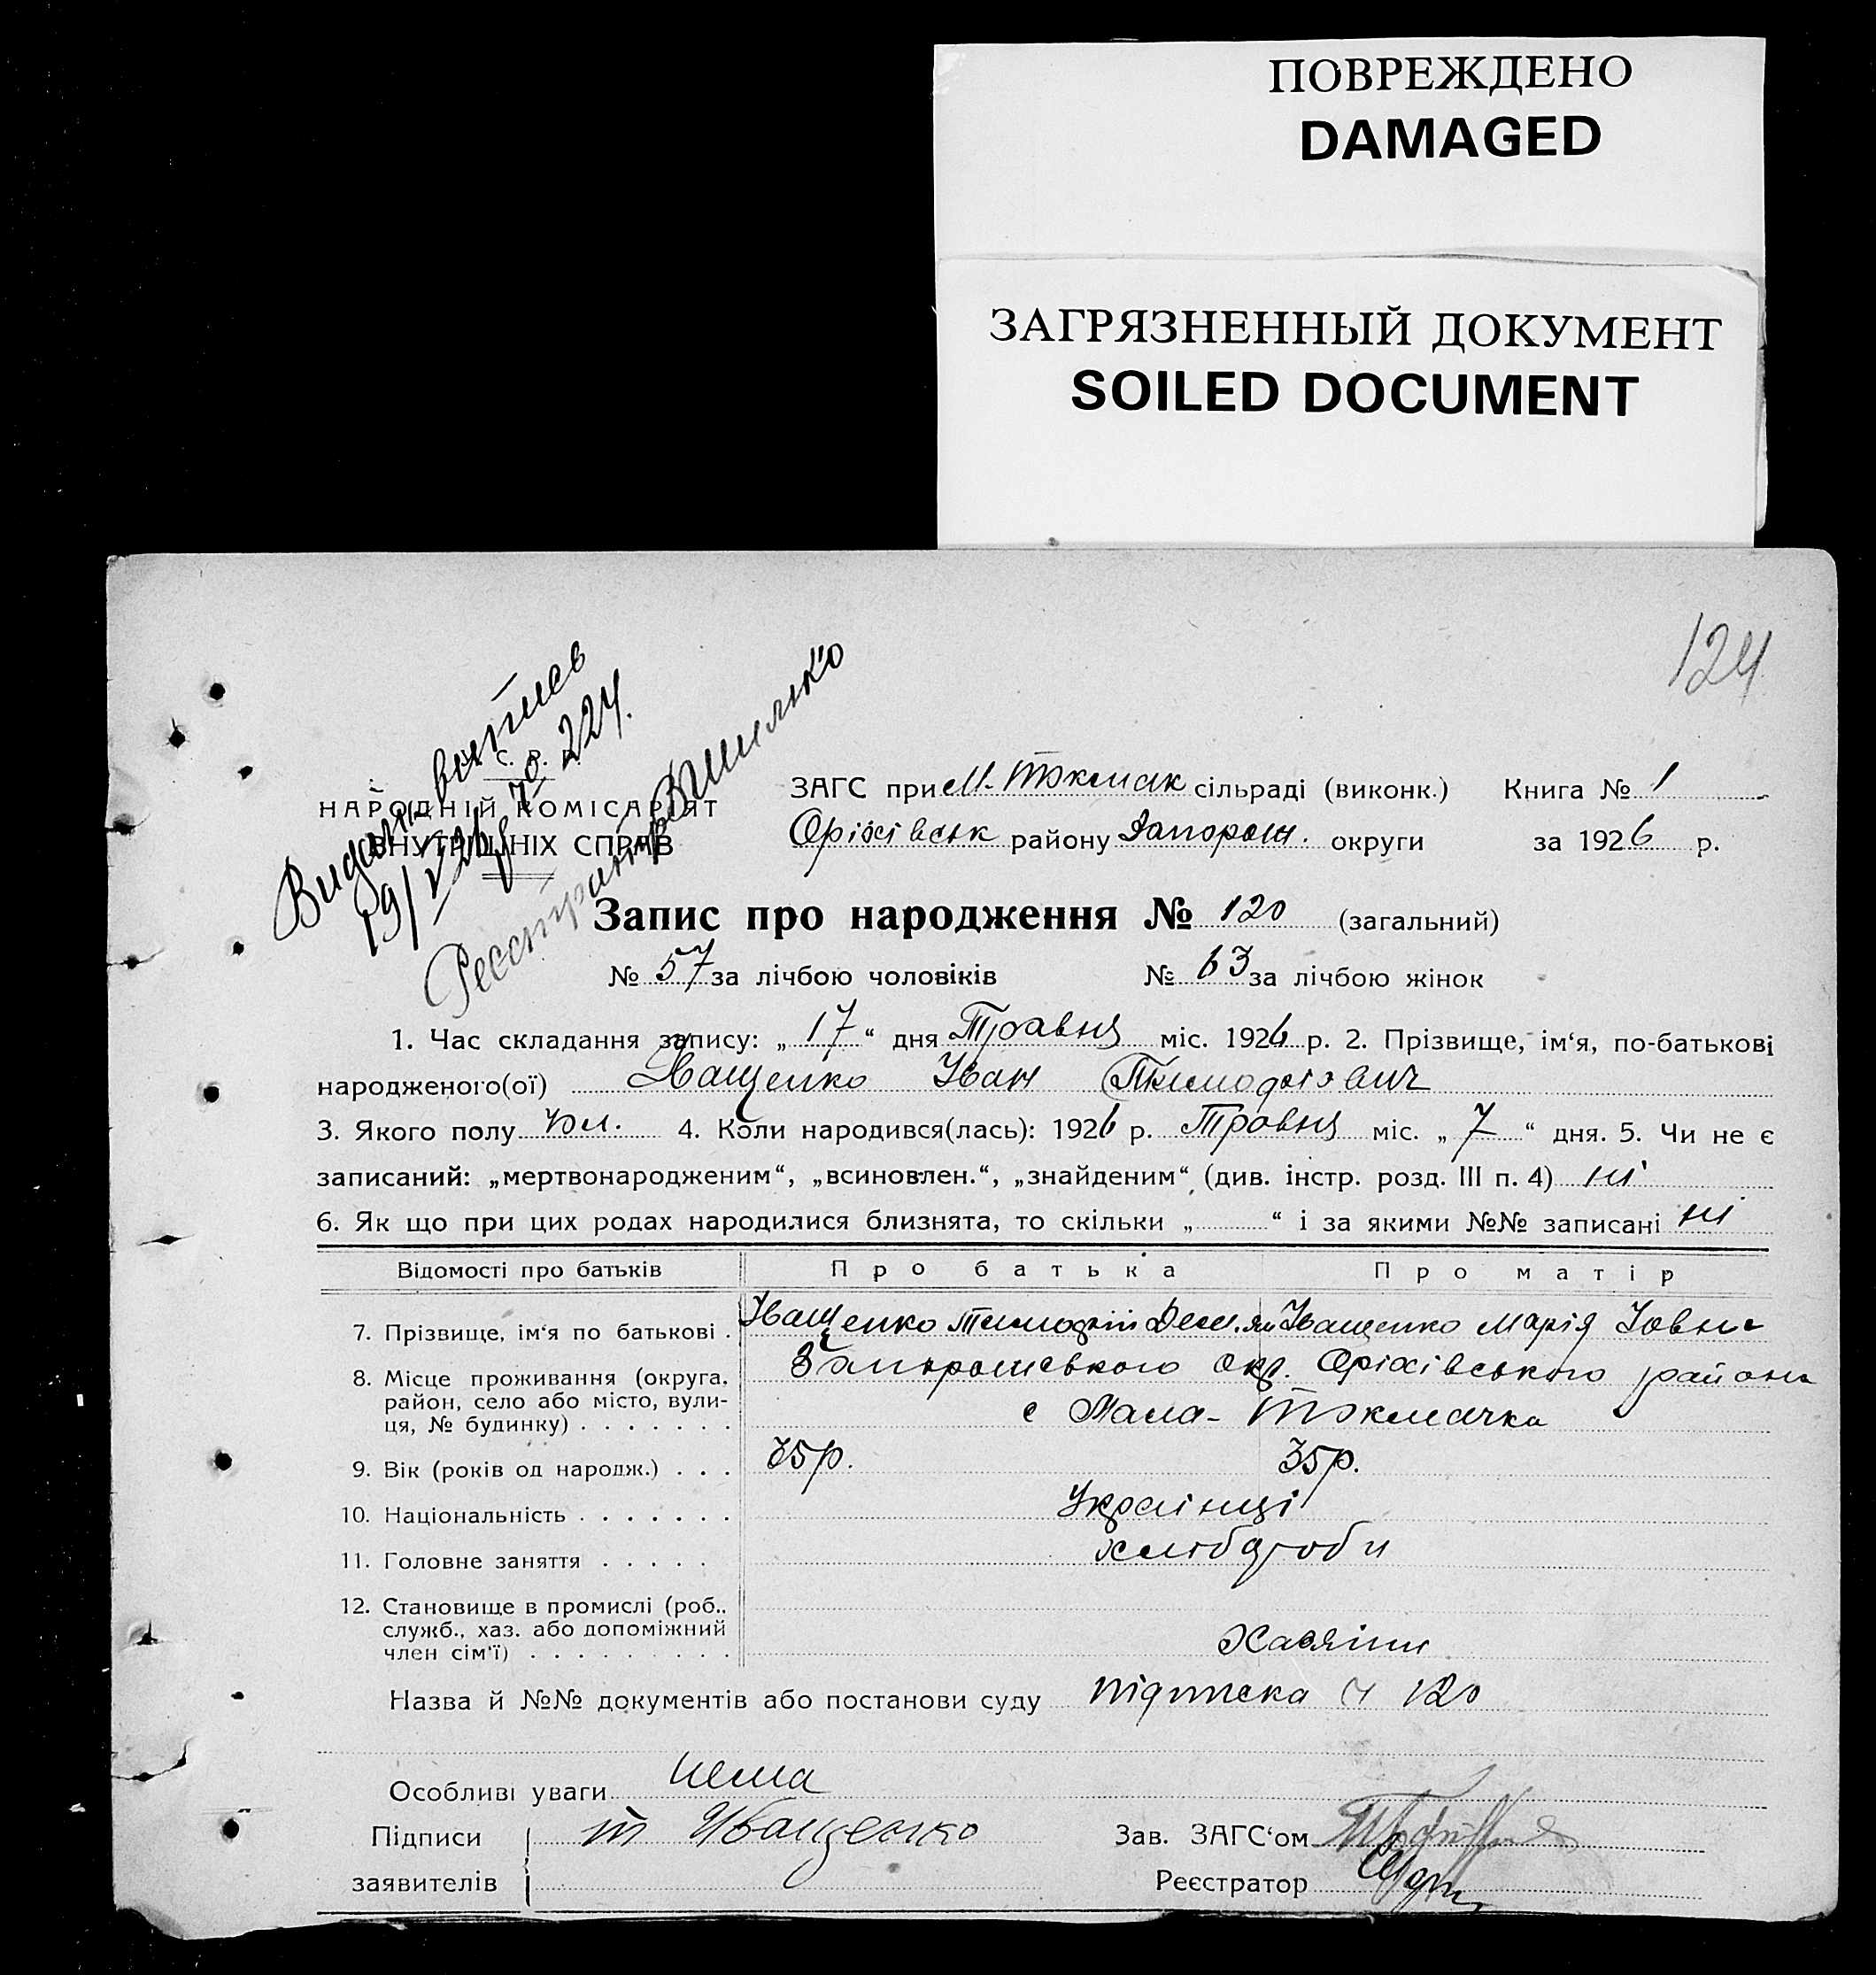 ПОВРЕЖДЕНО
DAMAGED
ЗАГРЯЗНЕННЫЙ ДОКУМЕНТ
SOILED DOCUMENT
124
Видан
224.
Реєстратор
У. С. Р. Р.
НАРОДНІЙ КОМІСАРІЯТ
ВНУТРІШНІХ СПРАВ
ЗАГС при М. Токмак сільраді (виконк.) Книга № 1
Оріхівськ району Запорож. округи за 1926 р.
Запис про народження № 120 (загальний)
№ 57 за лічбою чоловіків № 63 за лічбою жінок
1. Час складання запису: „ 17 “ дня Травня міс. 1926 р. 2. Прізвище, ім‘я, по-батькові
народженого(ої) Іващенко Іван Тимофієвич
3. Якого полу чол. 4. Коли народився(лась): 1926 р. Травня міс. „ 7 “ дня. 5. Чи не є
записаний: „мертвонародженим“, „всиновлен.“, „знайденим“ (див. інстр. розд. III п. 4) ні
6. Як що при цих родах народилися близнята, то скільки „ “ і за якими №№ записані ні
Відомості про батьків Про батька Про матір
7. Прізвище, ім‘я по батькові . Іващенко Тимофій Дем.ян Іващенко Марія Іовна
8. Місце проживання (округа, Запорожського окр. Оріхівського району
район, село або місто, вули-
ця, № будинку) . . . . . . . с Мала-Токмачка
9. Вік (років од народж.) . . . 35р. 35р.
10. Національність . . . . . . . Українці
11. Головне заняття . . . . . хлібороби
12. Становище в промислі (роб.,
служб., хаз. або допоміжний
член сім‘ї) . . . . . . . . . Хазяїни
Назва й №№ документів або постанови суду підписка ч 120
Особливі уваги нема
Підписи т Иващенко Зав. ЗАГС‘ом
заявителів Реєстратор